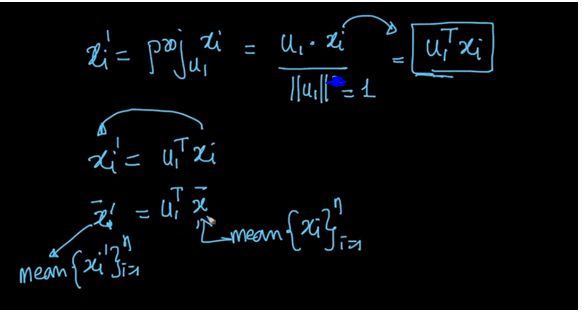 xᵢ' = proj_{u₁} xᵢ = u₁ · xᵢ / ||u₁|| = 1 = u₁ᵀxᵢ
xᵢ' = u₁ᵀ xᵢ
x̄ᵢ' = u₁ᵀ x̄
mean{xᵢ}ⁿᵢ₌₁
mean{xᵢ'}ⁿᵢ₌₁